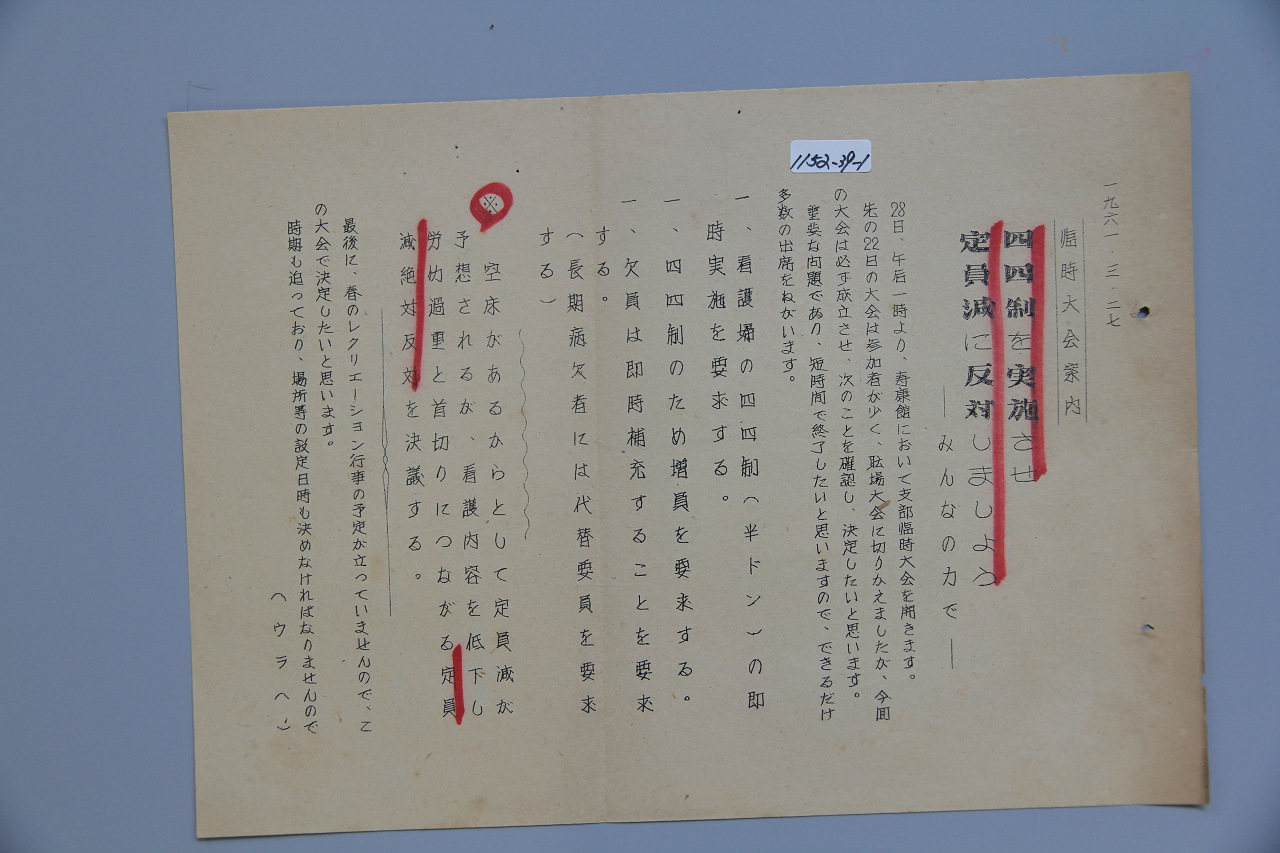 1152-39-1
一九六一・三・二七
臨時大会案内
四四制を実施させ
定員減に反対しましよう
――みんなの力で――
28日、午后一時より、寿康館において支部臨時大会を開きます。
先の22日の大会は参加者が少く、職場大会に切りかえましたが、今回
の大会は必ず成立させ、次のことを確認し、決定したいと思います。
重要な問題であり、短時間で終了したいと思いますので、できるだけ
多数の出席をねがいます。
一、看護婦の四四制(半ドン)の即
時実施を要求する。
一、四四制のため増員を要求する。
一、欠員は即時補充することを要求
する。
(長期病欠者には代替要員を要求
する)
※
空床があるからとして定員減が
予想されるが、看護内容を低下し
労仂過重と首切りにつながる定員
減絶対反対を決議する。
最後に、春のレクリエーション行事の予定が立っていませんので、こ
の大会で決定したいと思います。
時期も迫っており、場所等の設定日時も決めなければなりませんので
(ウラへ)